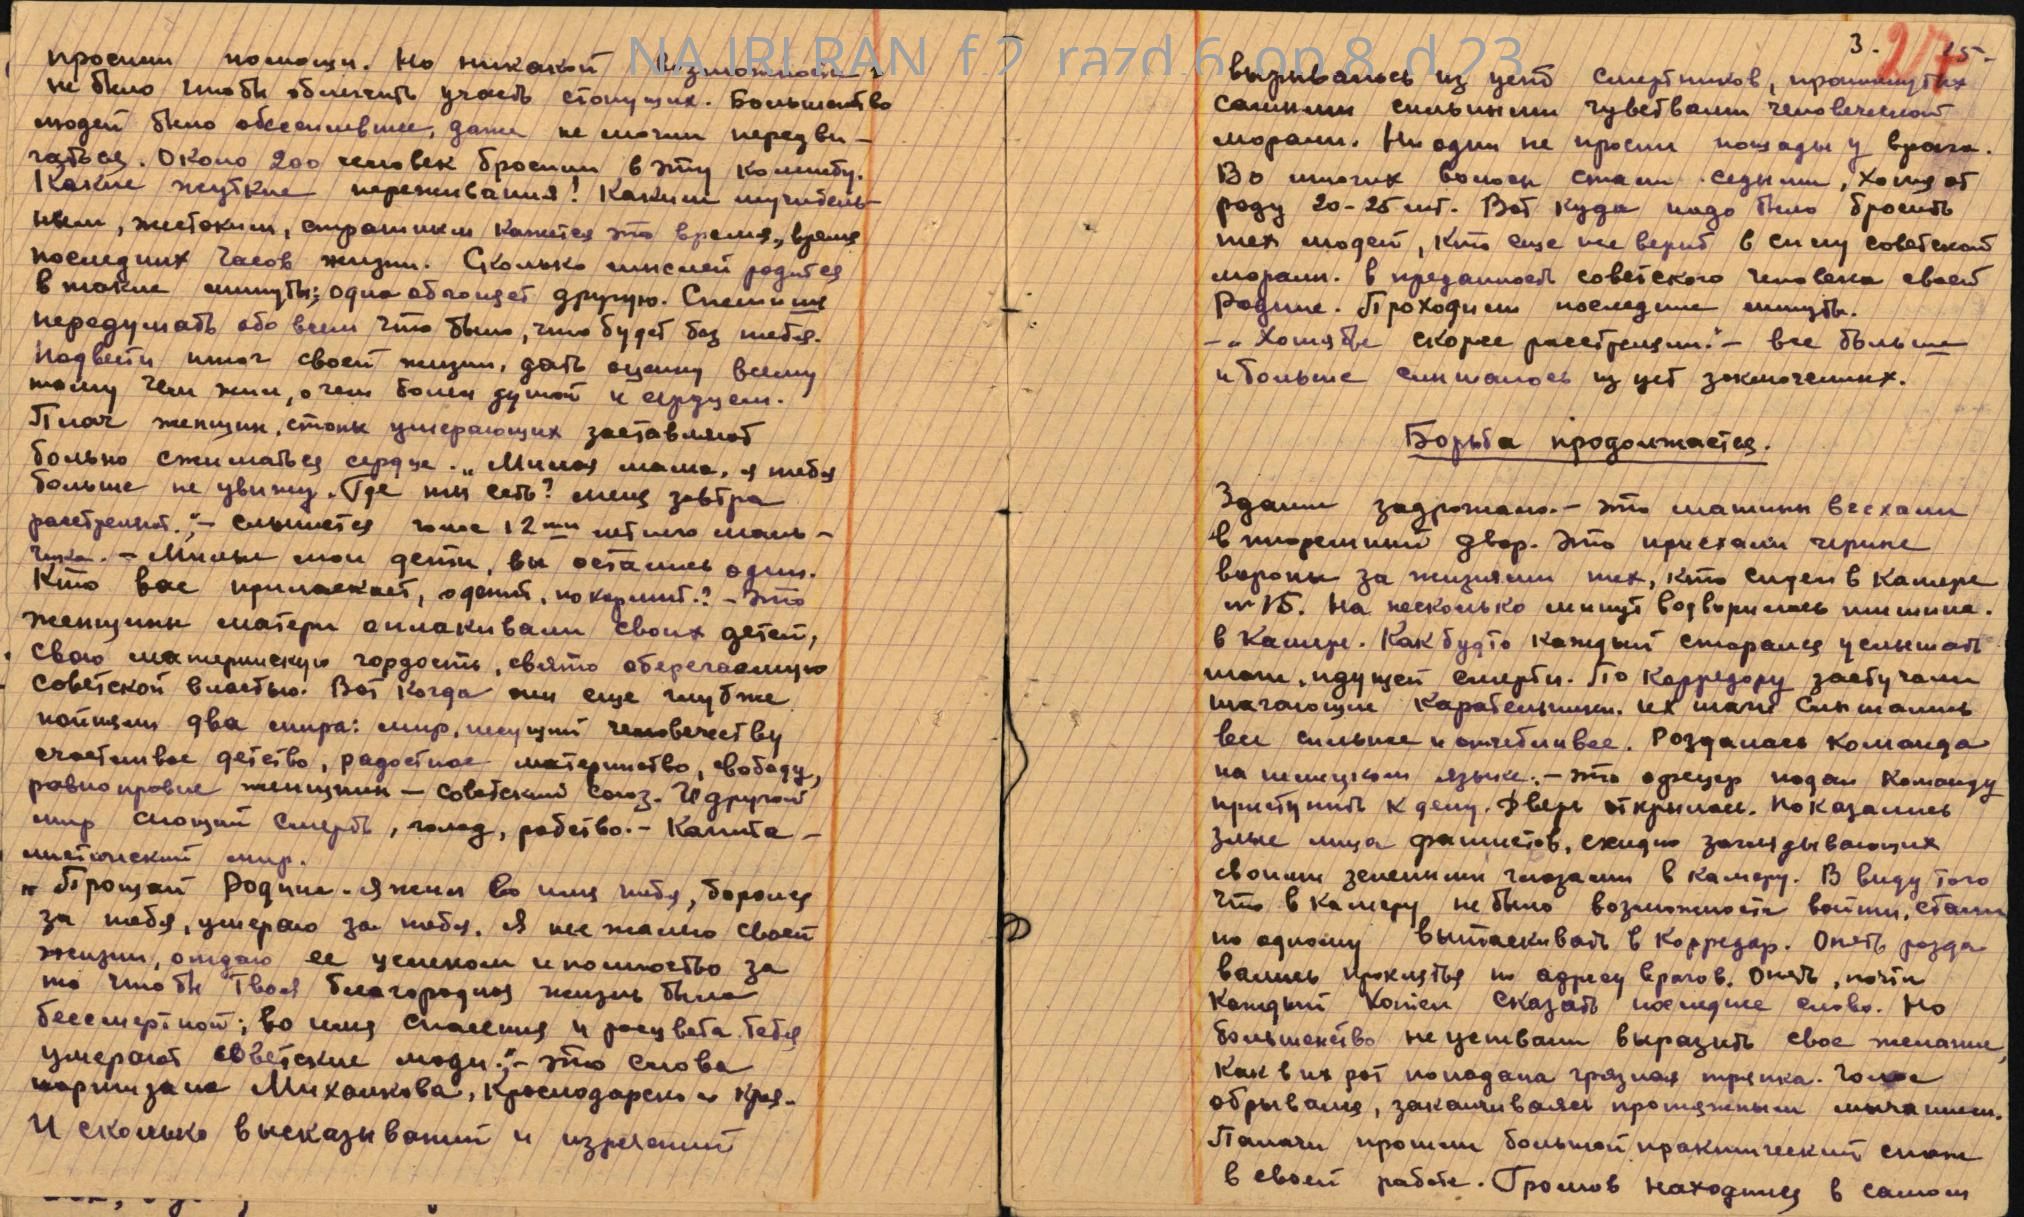 NA IRI RAN f.2 razd.6 op.8 d.23
просили помощи. Но никакой возможности
не было чтобы облегчить участь стонущих. Большинство
людей было обессилевшее, даже не могли передви-
гаться. Около 200 человек бросили в эту комнату.
Какие жуткие переживания! Каким мучитель-
ным, жестоким, страшным кажется это время, время
последних часов жизни. Сколько мыслей родится
в такие минуты: одна обгоняет другую. Спешишь
передумать обо всем что было, что будет без тебя.
Подвести итог своей жизни, дать оценку всему
тому чем жил, о чем болел душой и сердцем.
Плач женщин, стоны умерающих заставляют
больно сжиматься сердце. „Милая мама, я тебя
больше не увижу. Где ты есть? меня завтра
расстреляют."– слышется голос 12ти летнего маль-
чика. – Милые мои дети, вы остались одни.
Кто вас приласкает, оденит, покормит.? – Это
женщины матери оплакивали своих детей,
свою материнскую гордость, свято оберегаемую
советской властью. Вот когда они еще глубже
поняли два мира: мир, несущий человечеству
счастливое детство, радостное материнство, свободу,
равноправие женщины – советский союз. И другой
мир сеющий смерть, голод, рабство. – Капита-
листический мир.
„Прощай Родина. Я жил во имя тебя, боролся
за тебя, умераю за тебя. Я не жалею своей
жизни, отдаю ее целиком и полностью за
то чтобы Твоя благородная жизнь была
бессмертной; во имя спасения и расцвета тебя
умерают советские люди."– это слова
партизана Михалкова, Краснодарского края.
И сколько высказываний и изречений
3. 27 15-
вызывалось из уст смертников, проникнутых
самыми сильными чувствами человеческой
морали. Ни один не просил пощады у врага.
Во многих волосы стали седыми, хотя от
роду 20-25 лет. Вот куда надо было бросить
тех людей, кто еще не верит в силу советской
морали. в преданность советского человека своей
Родине. Проходили последние минуты.
–„Хотя бы скорее расстреляли."– все больше
и больше слышалось из уст заключенных.
Борьба продолжается.
Здание задрожало. – это машины въехали
в тюремный двор. Это приехали черные
вороны за жизнями тех, кто сидел в камере
№ 15. На несколько минут водворилась тишина.
в камере. Как будто каждый старался услышать
шаги, идущей смерти. По корредору застучали
шагающие карательщики. их шаги слышались
все сильнее и отчетливее. Раздалась команда
на немецком языке. – это офецер подал команду
приступить к делу. Дверь открылась. Показались
злые лица фашистов, ехидно заглядывающих
своими зелеными глазами в камеру. В виду того
что в камеру не было возможности войти, стали
по одному вытаскивать в корредор. Опять разда
вались проклятья по адресу врагов. Опять, почти
каждый хотел сказать последнее слово. Но
большенство не успевали выразить свое желание,
как в их рот попадала грязная тряпка. Голос
обрывался, заканчиваясь протяжным мычанием.
Палачи прошли большой практический стаж
в своей работе. Громов находился в самом